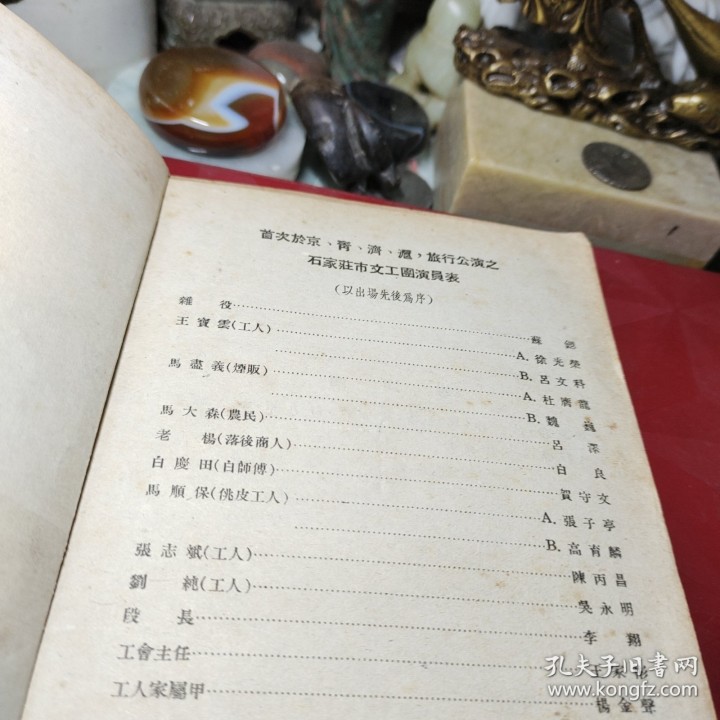 首次於京、青、濟、滬，旅行公演之
石家莊市文工團演員表
(以出場先後爲序)
雜役……蘇
王寶雲(工人)……A. 徐光榮
……B. 呂文科
馬盡義(煙販)……A. 杜
……B. 魏巍
馬大森(農民)……呂深
老楊(落後商人)……白良
白慶田(白師傅)……賀守文
馬順保(佻皮工人)……A. 張子亭
……B. 高育麟
張志斌(工人)……陳丙昌
劉純(工人)……吳永明
段長……李翔
工會主任……王
工人家屬甲……楊金聲
孔夫子旧书网
www.kongfz.com